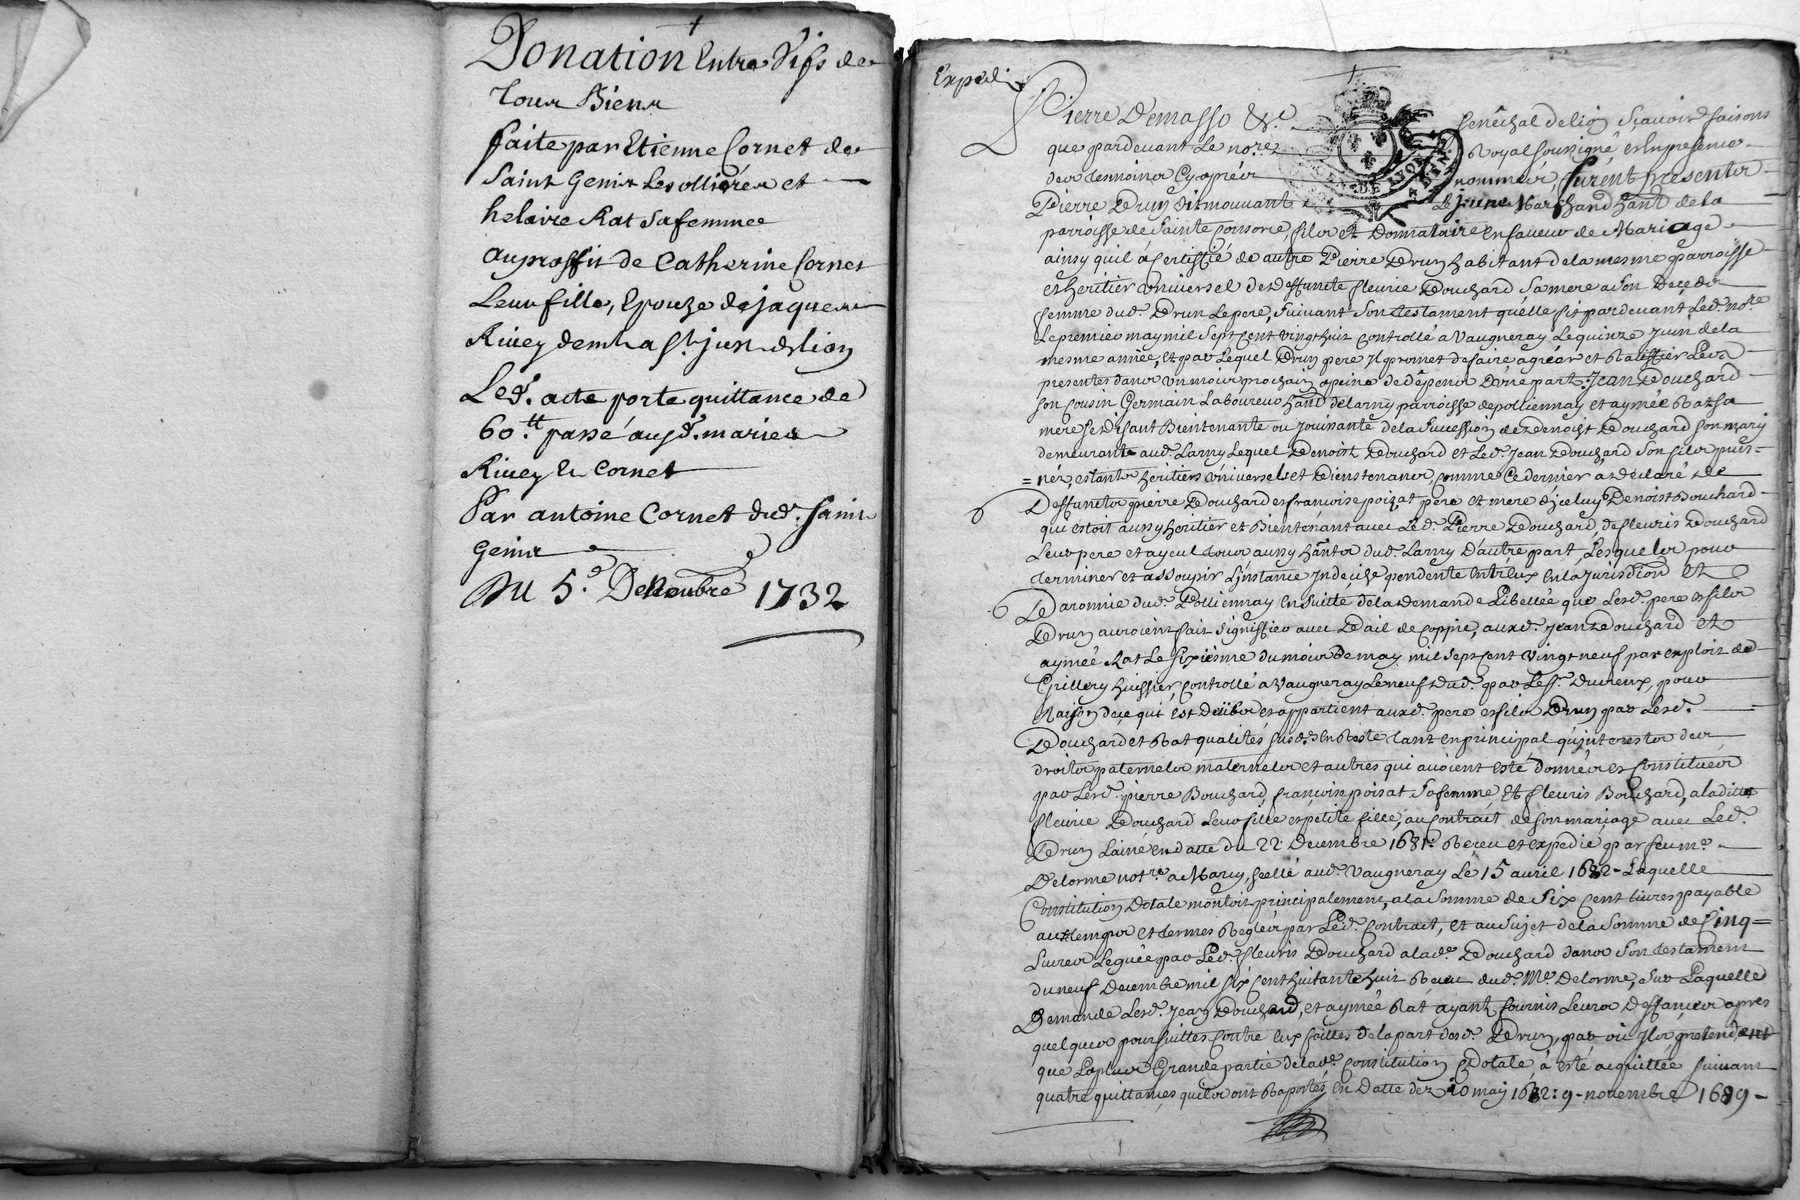 Donation Entre Vifs de
Tous Biens
faite par Etienne Cornet de
Saint Genis Les ollieres et
helaire Rat sa femme
au proffit de Catherine Cornet
Leur fille, Epouze de jaques
Rivey dem.t a S.t just de lion
Led. acte porte quittance de
60.tt passé ausd. maries
Rivey et Cornet
Par antoine Cornet dud. saint
Genis
Du 5.e Decembre 1732
Exped.
Pierre Demasso &c. senechal de lion sçavoir faisons
que pardevant Le no.re Royal soussigné et En presence
des temoins Cy apres nommés, furent presents
Pierre Drun dit mouvant Le jeune Marchand hant de la
parroisse de Sainte Consorce, fils et Donnataire en faveur de Mariage
ainsy quil a certiffié de autre Pierre Drun habitant de la mesme parroisse
et heritier universel de deffuncte fleurie Bouchard sa mere a son deceds
femme dud. Drun Le pere, suivant son testament quelle fit pardevant Led. no.re
Le premier may mil sept cent vingt huit controllé a Vaugneray Le quinze juin de la
mesme année, et par Lequel Drun pere il promet de faire agréer et Ratiffier Les
presentes dans un mois prochain a peine de depens d'une part. Jean Bouchard
son Cousin Germain Laboureur hant de Larny parroisse de polliennay et aymée Rat sa
mere se disant Bientenante ou jouissante de la succession de Benoist Bouchard son mary
demeurante aud. Larny Lequel Benoist Bouchard et Led. Jean Bouchard son fils puis=
=nés, estants heritiers universels et Bienstenants, comme ce dernier a declaré de
Deffuncts pierre Bouchard et francoise poizat pere et mere d'jceluy Benoist Bouchard
qui estoit aussy heritier et Bientenant avec Led. Pierre Bouchard, de fleuris Bouchard
Leur pere et ayeul tous aussy hants dud. Larny d'autre part, Lesquels pour
terminer et assoupir L'instance Indecise pendente entreux en la jurisdiction et
Baronnie dud. Polliennay en suitte de la demande Libellée que Lesd. pere et fils
Drun auroient fait signiffier avec Bail de Coppie, auxd. Jean Bouchard et
aymée Rat Le sixiesme du mois de may mil sept cent vingt neuf par exploit de
Grillery huissier, controllé a Vaugneray Le neuf dud. par Le s.r Ducreux, pour
Raison de ce qui est deub et appartient auxd. pere et fils Drun par Lesd.
Bouchard et Rat qualités susd. en Reste tant en principal qu'jnterests des
droits paternels maternels et autres qui avoient esté donnés et Constitués
par Lesd. pierre Bouchard, françoise poisat sa femme et fleuris Bouchard, a ladite
fleurie Bouchard Leur fille et petite fille, au contrat de son mariage avec Led.
Drun L'ainé en datte du 22 Decembre 1681. Receu et expedié par feu m.e
Delorme not.re a Marcy, scellé aud. Vaugneray Le 15 avril 1682 - Laquelle
Constitution Dotale montoit principalement, a la somme de Six Cent Livres payable
aux temps et termes Reglés par Led. Contract, et au sujet de la somme de Cinq=
Livres Leguée par Led. fleuris Bouchard a lad. Bouchard dans son testament
du neuf Decembre mil six cent huitante huit Receu dud. M.e Delorme, sur Laquelle
Demande Lesd. Jean Bouchard, et aymée Rat ayant fournis Leurs Deffances apres
quelques poursuittes contre eux faittes de la part desd. Drun, par où ils pretendent
que La plus Grande partie de lad. Constitution Dotale, a esté acquittée suivant
quatre quittances quils ont Raportés, en Datte des 10 may 1682: 9 - novembre 1689 -